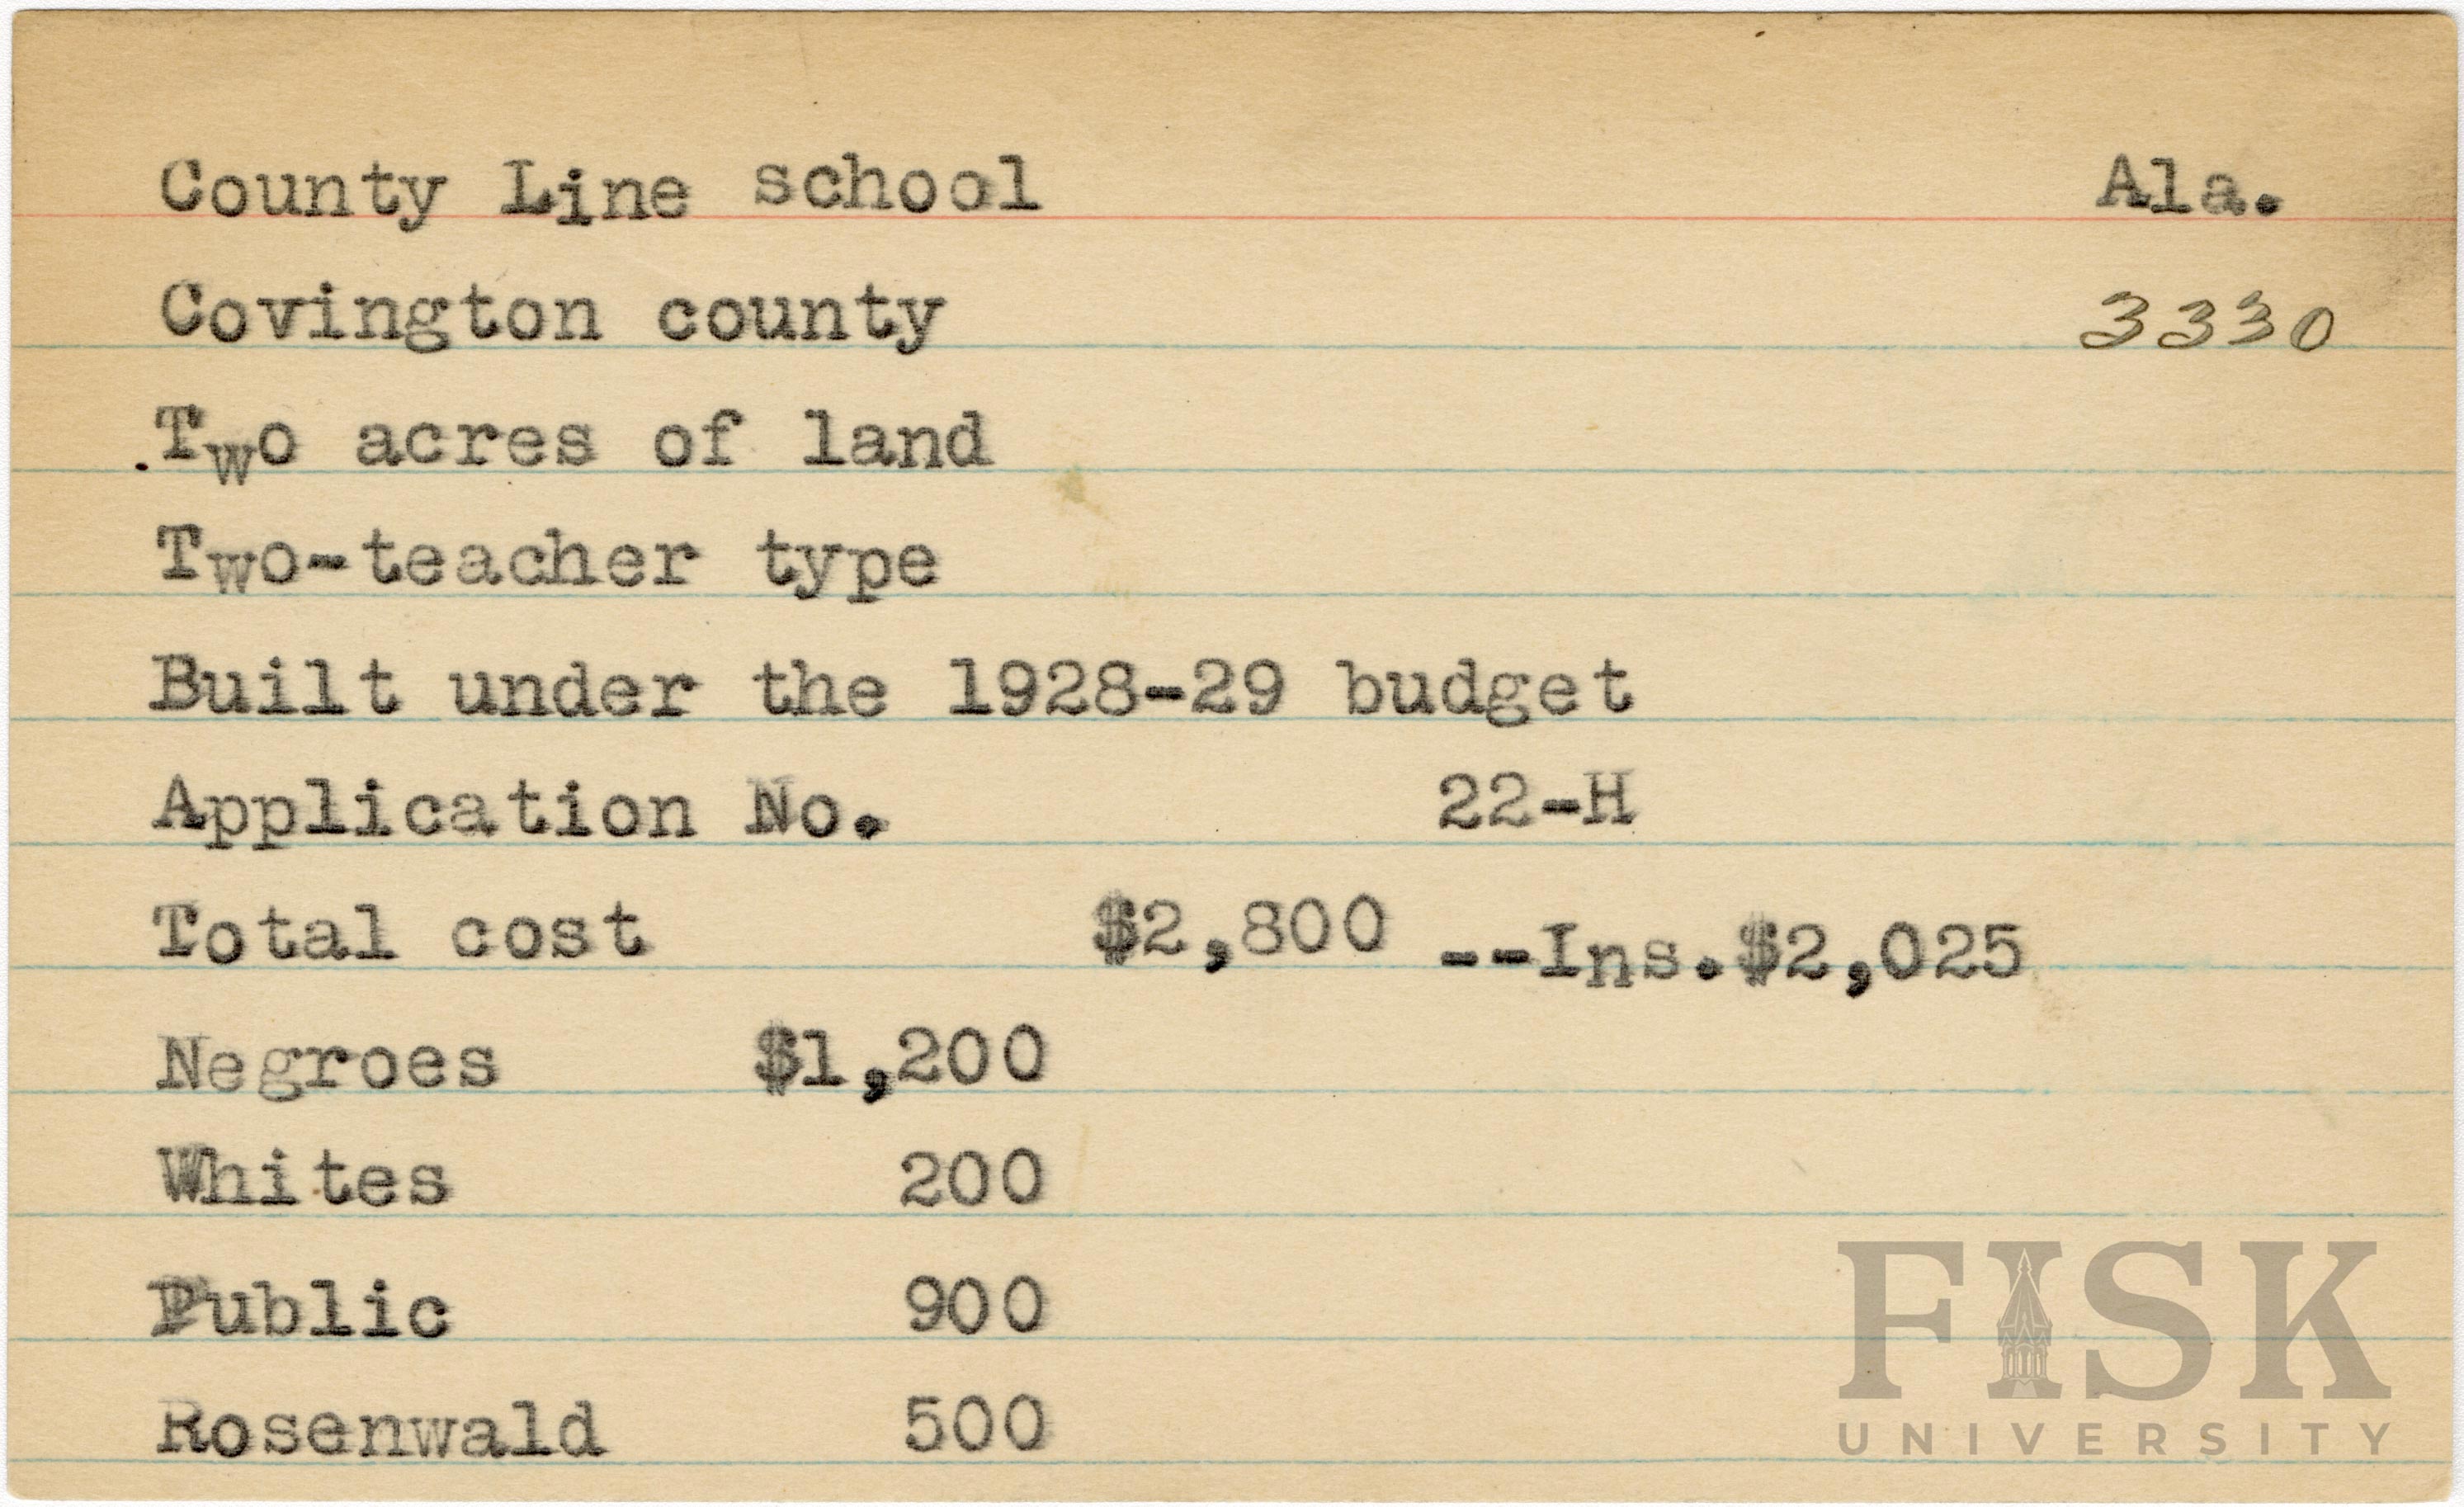 County Line school Ala.
Covington county 3330
Two acres of land
Two-teacher type
Built under the 1928-29 budget
Application No. 22-H
Total cost $2,800 --Ins.$2,025
Negroes $1,200
Whites 200
Public 900
Rosenwald 500
FISK
UNIVERSITY